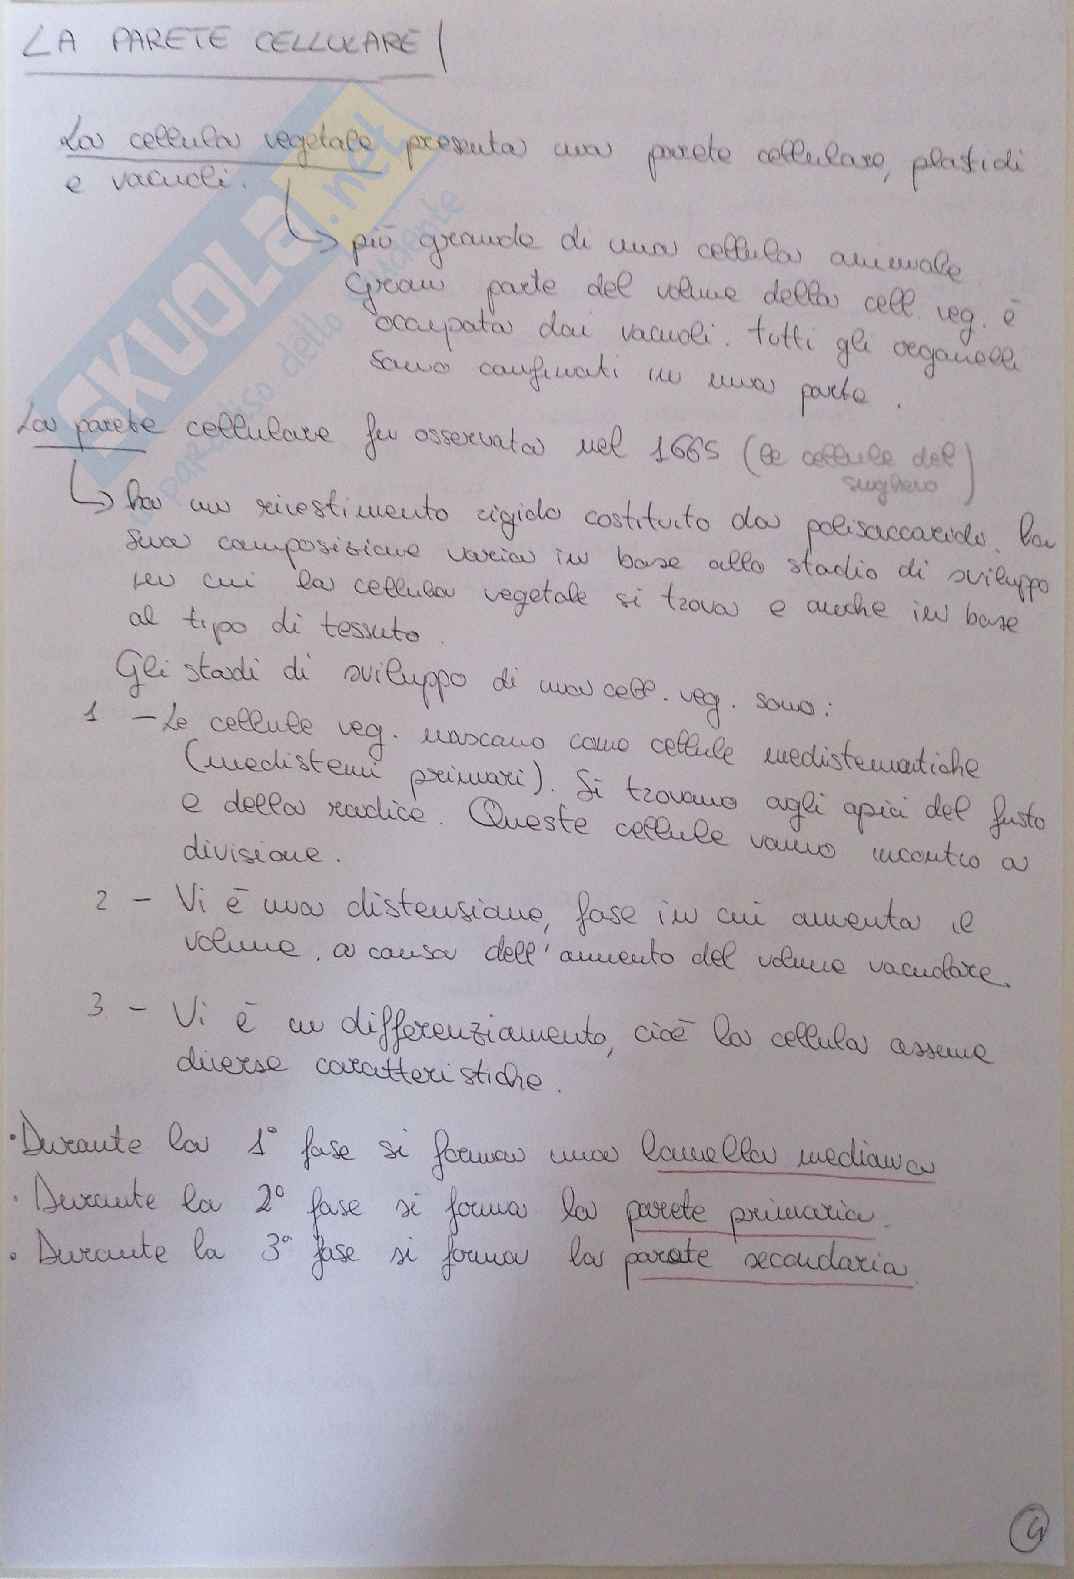 LA PARETE CELLULARE
La cellula vegetale presenta una parete cellulare, plastidi
e vacuoli.
più grande di una cellula animale.
Gran parte del volume della cell. veg. è
occupata dai vacuoli. Tutti gli organelli
sono confinati in una parte.
La parete cellulare fu osservata nel 1665 (le cellule del
sughero)
ha un rivestimento rigido costituito da polisaccaride. La
sua composizione varia in base allo stadio di sviluppo
in cui la cellula vegetale si trova e anche in base
al tipo di tessuto.
Gli stadi di sviluppo di una cell. veg. sono:
1 - Le cellule veg. nascono come cellule medistematiche
(medistemi primari). Si trovano agli apici del fusto
e della radice. Queste cellule vanno incontro a
divisione.
2 - Vi è una distensione, fase in cui aumenta il
volume, a causa dell'aumento del volume vacuolare.
3 - Vi è un differenziamento, cioè la cellula assume
diverse caratteristiche.
• Durante la 1° fase si forma una lamella mediana
• Durante la 2° fase si forma la parete primaria.
• Durante la 3° fase si forma la parete secondaria.
SKUOLA.net